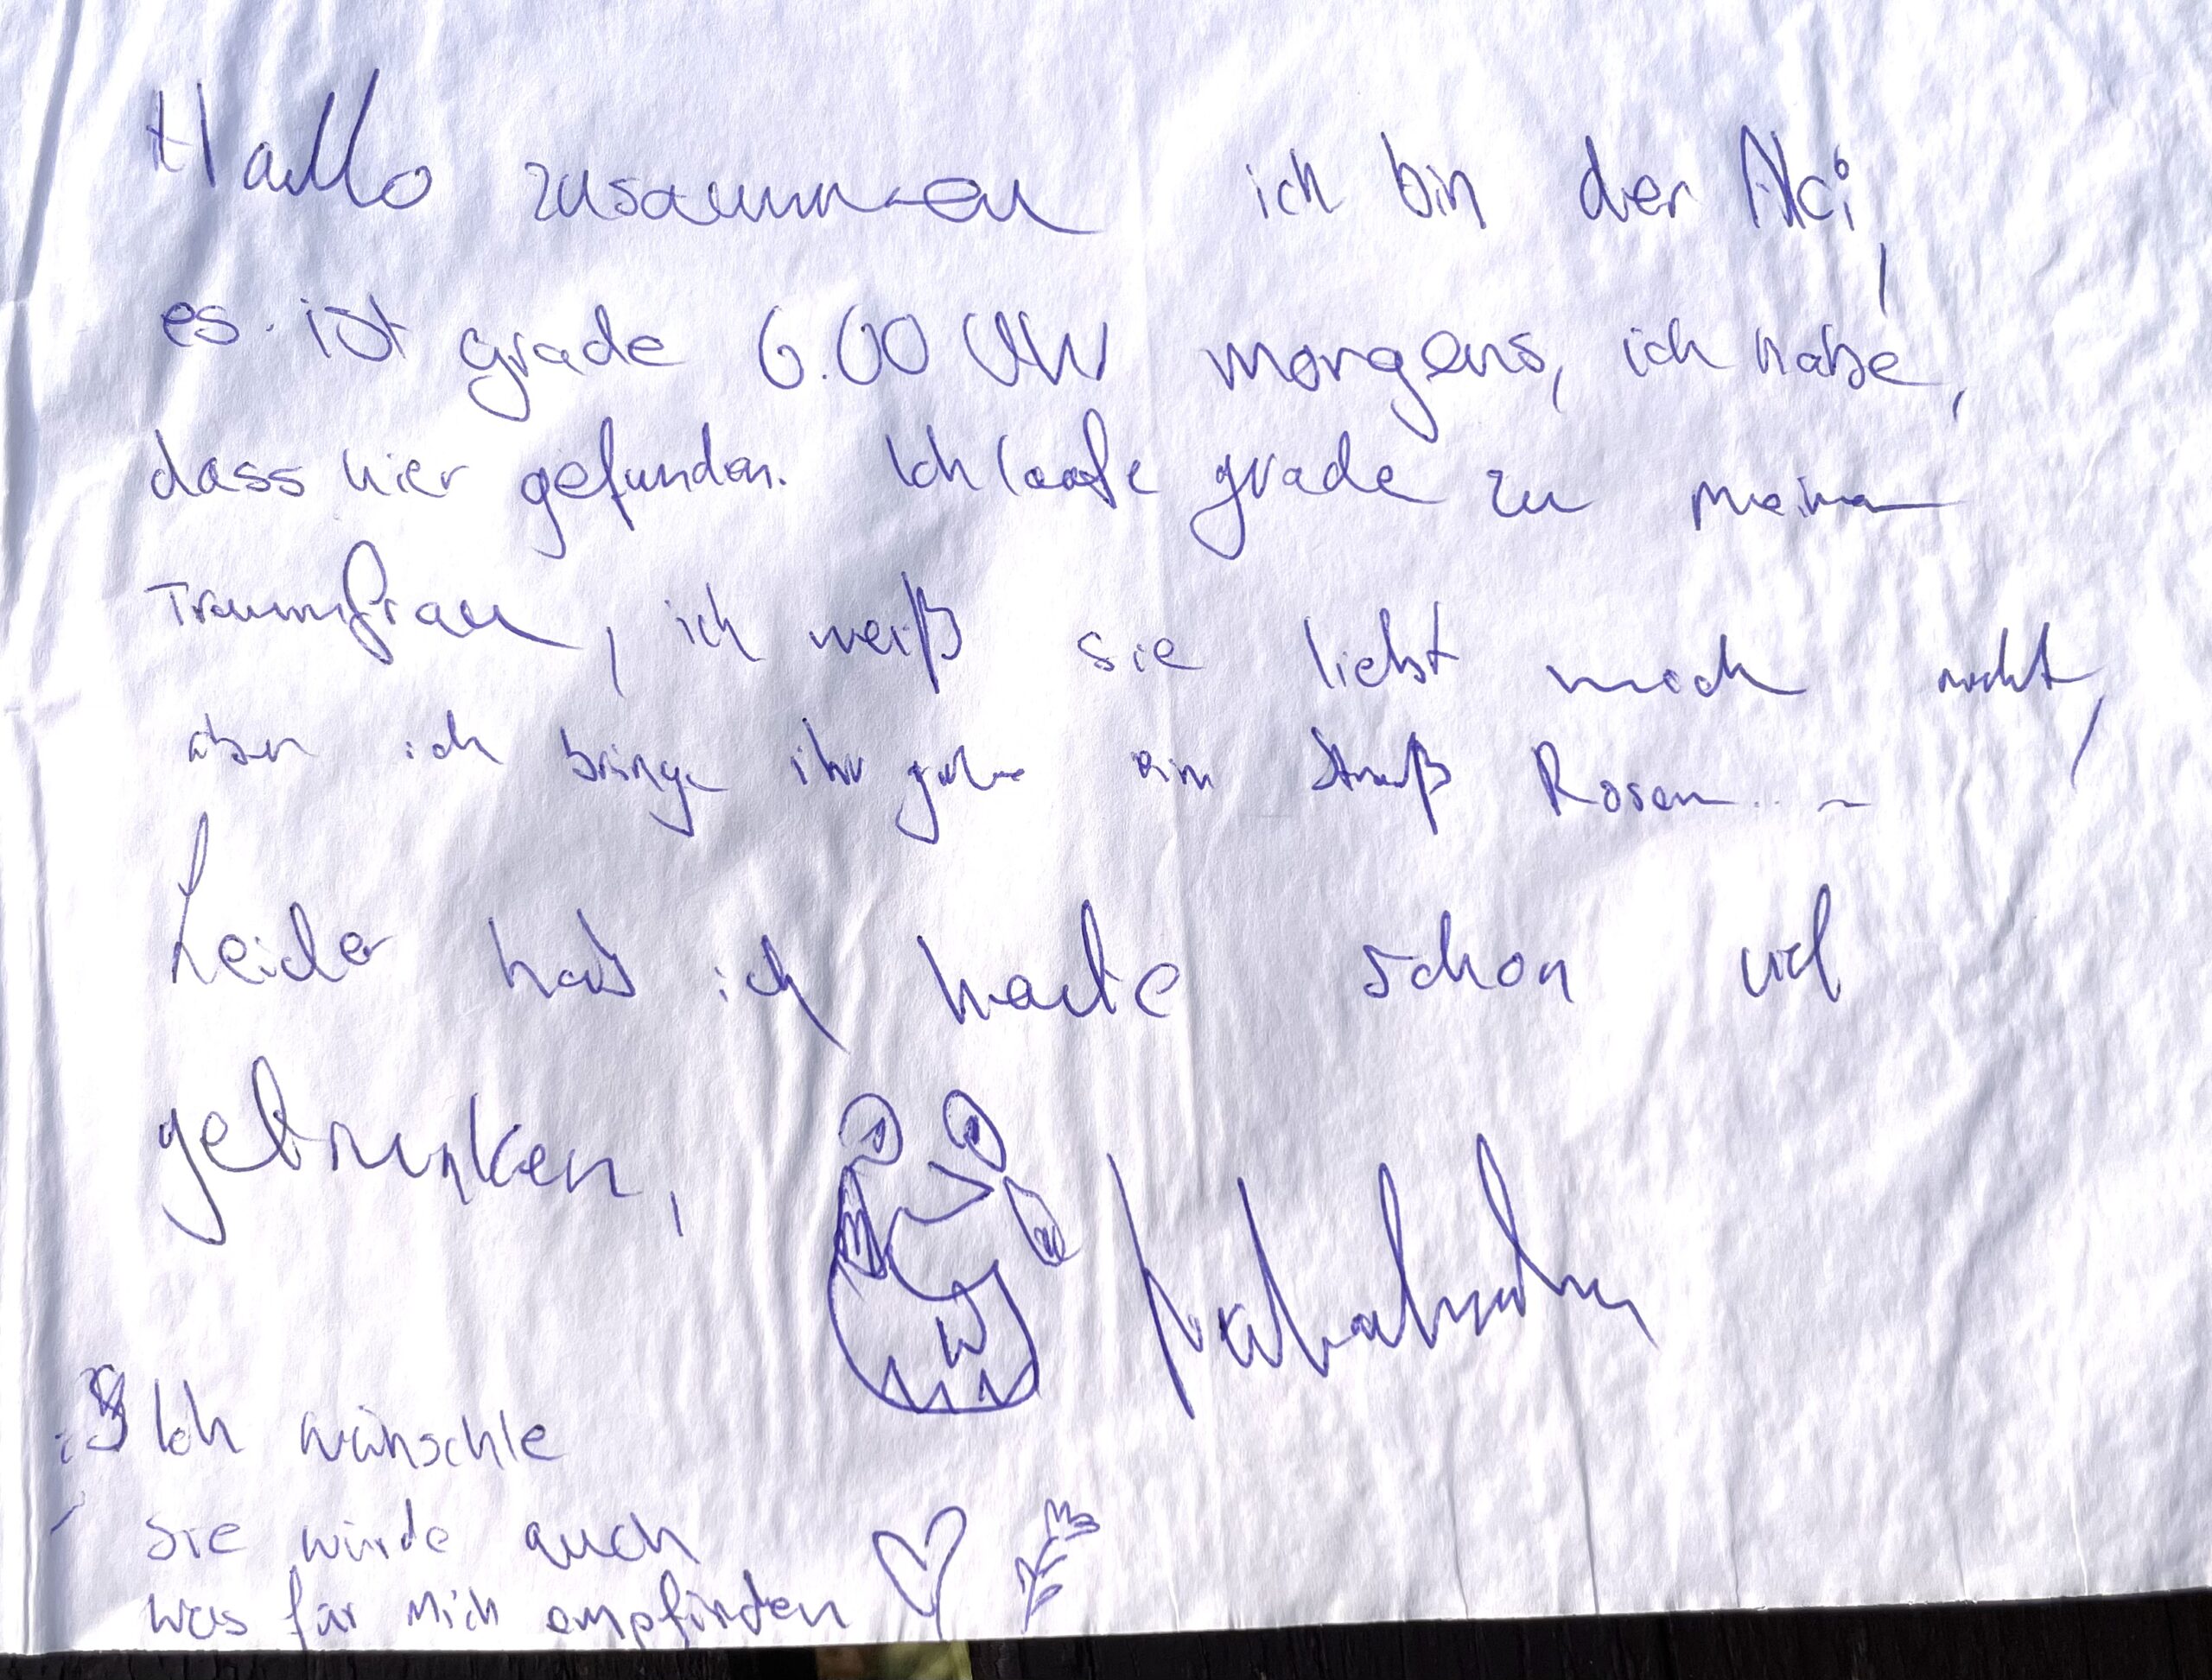 Hallo zusammen ich bin der Aki,
es ist grade 6.00 Uhr morgens, ich habe,
dass hier gefunden. Ich laufe grade zu meiner
Traumfrau, ich weiß sie liebt mich nicht,
aber ich bringe ihr ein Strauß Rosen...
Leider hab ich heute schon viel
getrunken,
Ich wünschte
sie würde auch
was für mich empfinden